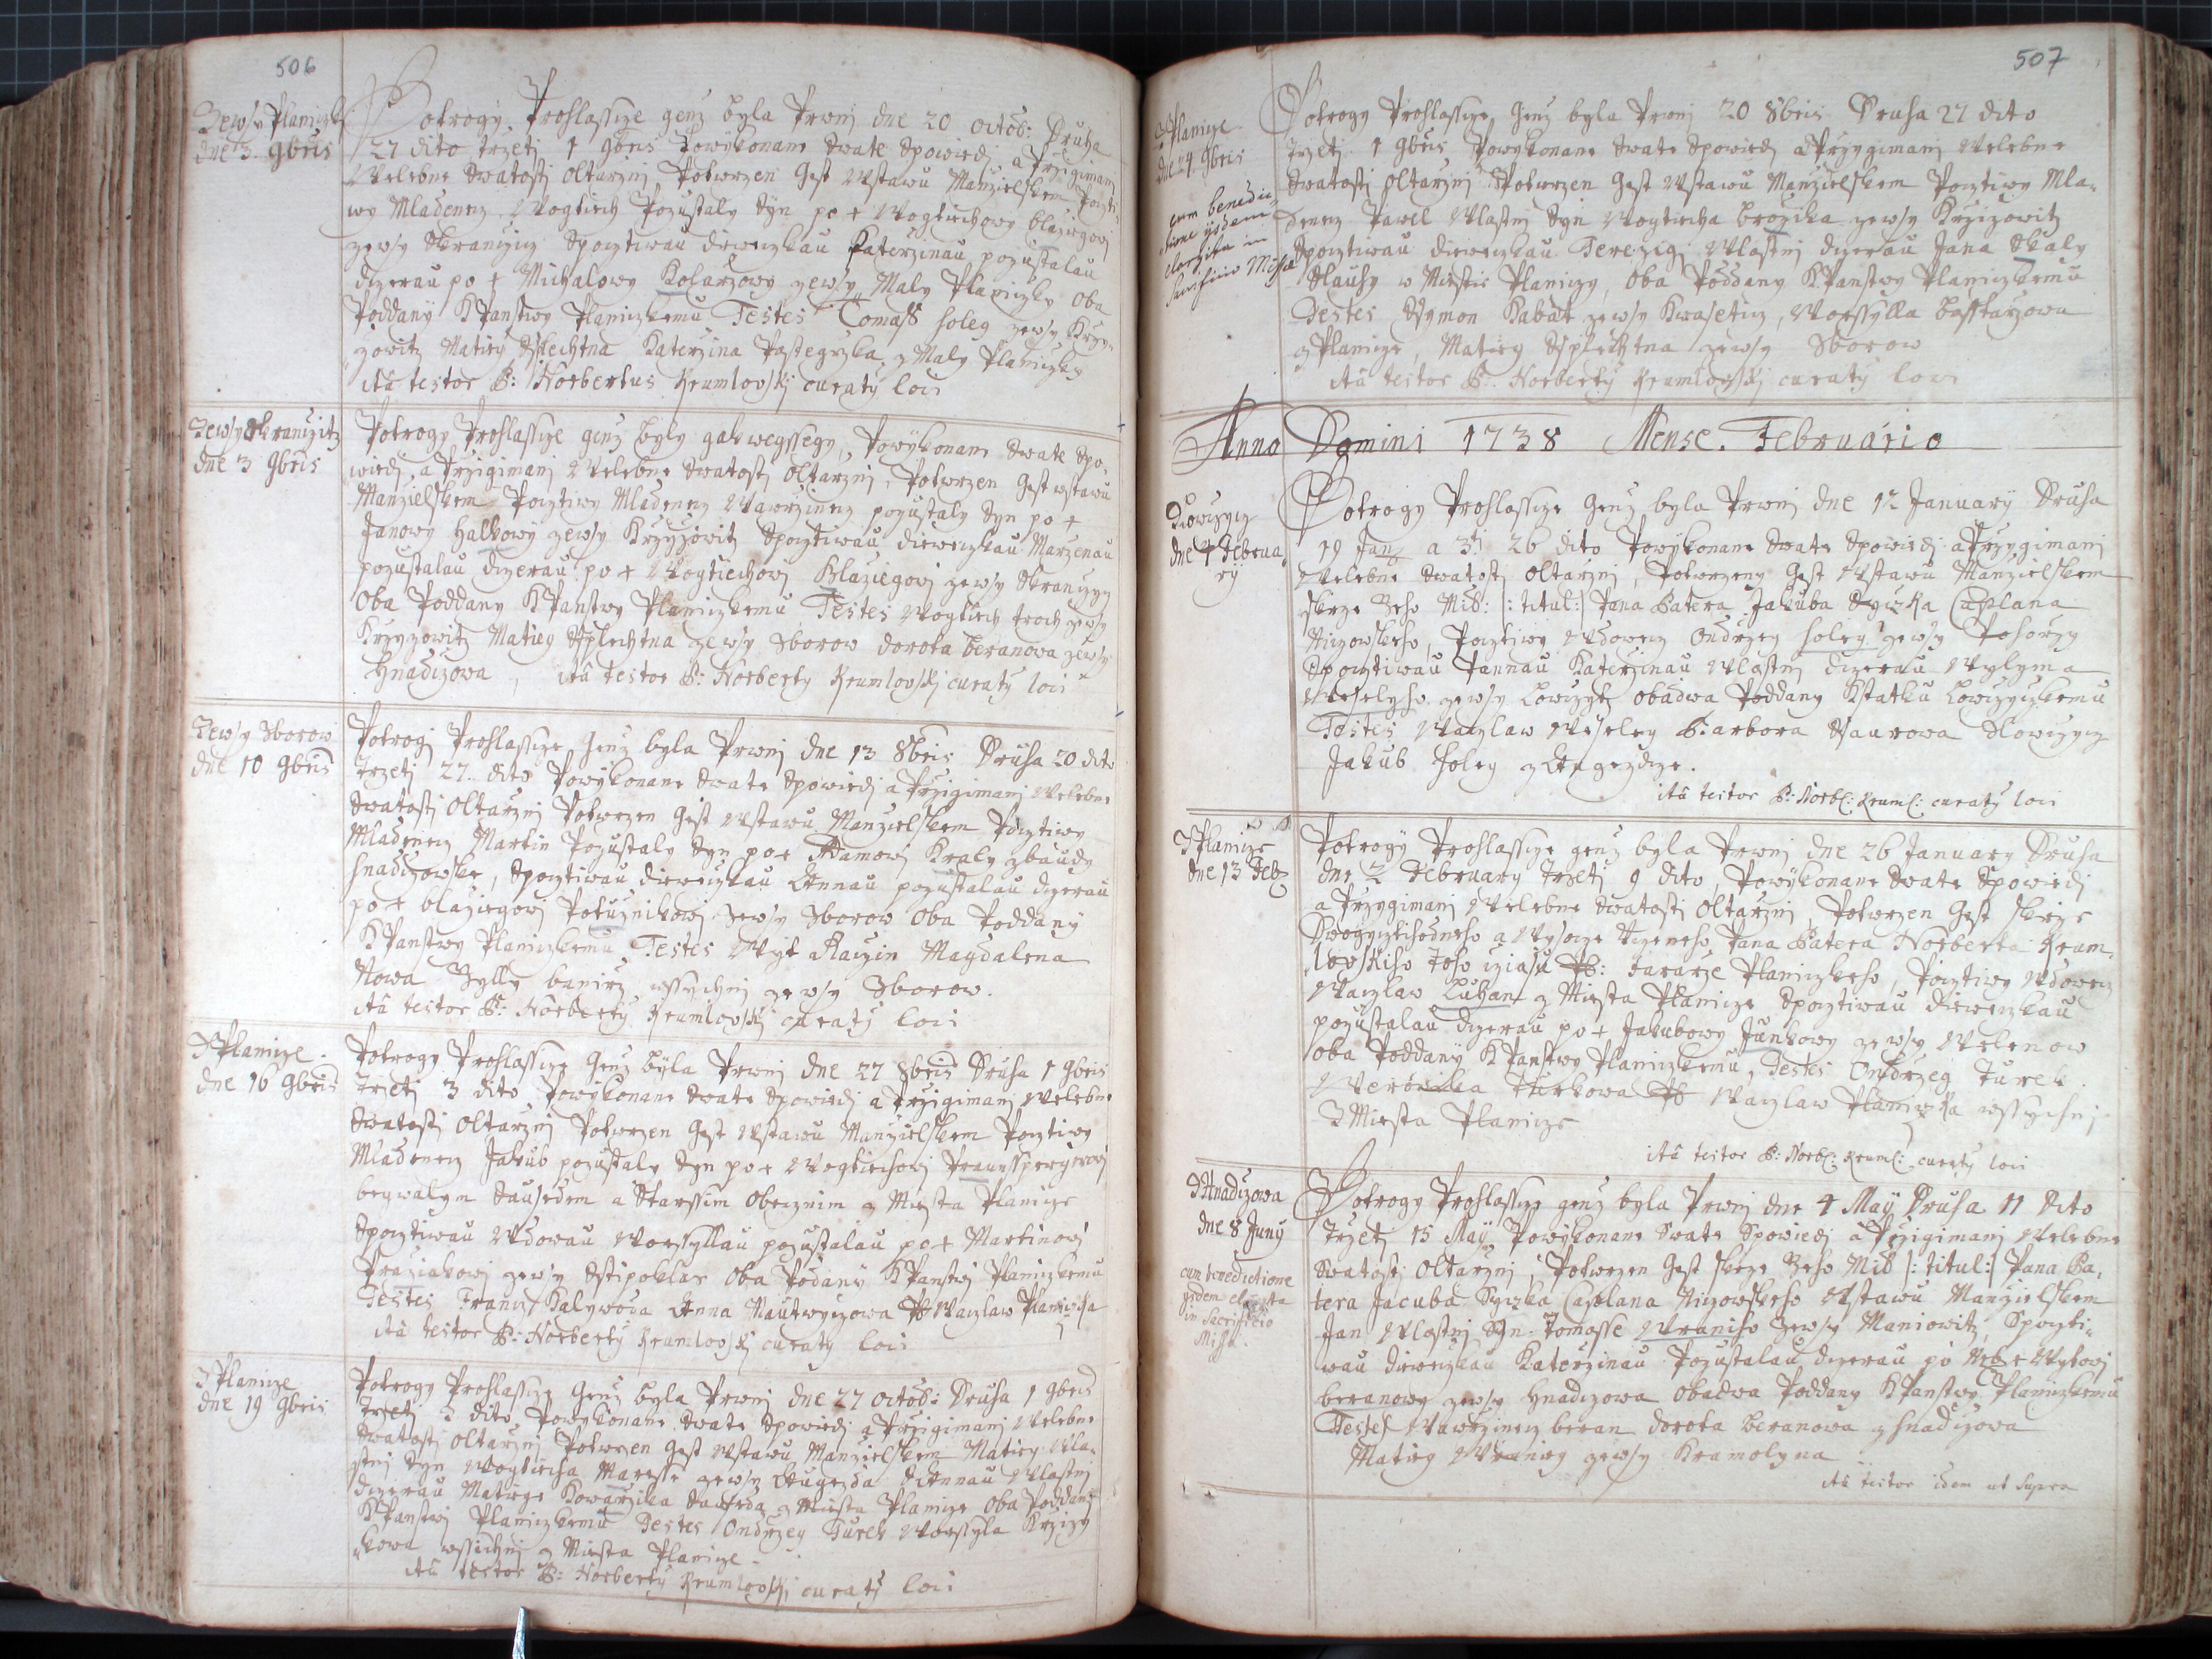 506
Zewsy Planiczky
dne 3. 9bris
Potrogy Prohlassze genz byla Prwnj dne 20 octob: Druha
27 dito trzetj 1 9bris Powykonane Swate Spowiedj a Przigimanj
Welebne Swatosti oltarznj Potwrzen Gest Wstawu Manzielskem Pocztiwy
Mladenecz Wogtiech Pozustaly Syn po + Wogtiechowy blaziegowj
zewsy Skranczicz Spocztiwau diewczkau Katerzinau pozustalau
dczerau po + Michalowy Kolarzowy zewsy Maly Planiczky oba
Poddany KPanstwy Planiczkemu Testes Tomass holey zewsy Krzy-
zowitz Matiey Splechtna Katerzina Pastegrzka z Maly Planiczky
ita testor P: Norbertus Krumlovskj curaty loci
Zewsy Skranczitz
dne 3 9bris
Potrogy Prohlassze genz byly gakwegssegy, Powykonane Swate Spo-
wiedj, a Przigimanj Welebne Swatosti oltarznj, Potwrzen Gest wstawu
Manzielskem Pocztiwy Mladenecz Wawrzinecz pozustaly Syn po +
Janowy halkowy zewsy Krzyzowitz Spocztiwau diewczkau Marzenau
pozustalau dczerau po + Wogtiechowj Blaziegowj zewsy Skranczycz
Oba Poddany KPanstwy Planiczkemu Testes Wogtiech troch zewsy
Krzyzowitz Matiey Splechtna zewsy Zborow dorota beranowa zewsy
Hnadczowa, ita testor P: Norberty Krumlovskj curaty loci
Zewsy Zborow
dne 10 9bris
Potrogj Prohlassze Genz byla Prwnj dne 13 8bris Druha 20 dito
Trzetj 27. dito Powykonane Swate Spowiedj a Przigimanj Welebne
Swatosti Oltarznj Potwrzen Gest Wstawu Manzielskem Pocztiwy
Mladenecz Martin Pozustaly Syn po + Adamowj Kraly zbaudy
hnadczowske, Spocztiwau diewczkau Annau pozustalau dczerau
po + blaziegowj Potuznikowj zewsy Zborow Oba Poddany
KPanstwy Planiczkemu Testes Wyt Raczin Magdalena
Nowa Gylly banirz wssychnj zewsy Zborow.
ita testor P: Norberty Krumlovskj curaty loci
ZPlanicze
dne 16 9bris
Potrogy Prohlassze Genz byla Prwnj dne 27 8bris Druha 1 9bris
Trzetj 3 dito Powykonane Swate Spowiedj a Przigimanj Welebne
Swatosti Oltarznj Potwrzen Gest Wstawu Manzielskem Pocztiwy
Mladenecz Jakub pozustaly Syn po + Wogtiechowj
beywalym Sausedem a Starssim Obecznim z Miesta Planicze
Spocztiwau Wdowau Worssyllau pozustalau po + Martinowj
Praziakowj zewsy Sstipoklas Oba Podany KPanstwj Planiczkemu
Testes Frantz Kalywoda Anna Nautwyczowa Waczlaw Planiczka
ita testor P: Norberty Krumlovskj curaty loci
ZPlanicze
dne 19 9bris
Potrogy Prohlassze Genz byla Prwnj dne 27 octob: Druha 1 9bris
Trzetj 3 dito, Powykonane Swate Spowiedj a Przigimanj Welebne
Swatosti oltarznj Potwrzen Gest Wstawu Manzielskem Matiey Wla-
stnj Syn Wogtiecha Maresse zewsy Augezda SAnnau Wlastnj
dczerau Matiege Kowarzika Sauseda z Miesta Planicze Oba Poddany
KPanstwj Planiczkemu Testes Ondrzey Turek Worssyla Krzizy-
kowa wssichnj z Miesta Planicze
ita testor P: Norberty Krumlovskj curaty loci
507
ZPlanicze
dne 19. 9bris
cum benedic-
tione
in
Missae
Potrogy Prohlassze, Genz byla Prwnj 20 8bris Druha 27 dito
Trzetj 1 9bris Powykonane Swate Spowiedj a Przygimanj Welebne
Swatosti oltarznj Potwrzen Gest Wstawu Manzielskem Pocztiwy Mla-
denecz Pawel Wlastnj Syn Wogtiecha brozika zewsy Krzizowitz
Spocztiwau diewczkau Terezigj Wlastnj dczerau Jana Skaly
Slauhy w Miestie Planiczy, oba Poddany KPanstwy Planiczkemu
Testes Ssymon Kabat zewsy Kwaseticz, Worssylla basstarzowa
zPlanicze, Matiey Ssplechtna zewsy Zborow
ita testor P: Norberty Krumlovskj curaty loci
Anno Domini 1738 Mense. Februario
dne 4 Februa-
ry
Potrogy Prohlassze Genz byla Prwnj dne 12 January Druha
19 Jan a 3tj 26 dito Powykonane Swate Spowiedj a Przygimanj
Welebne Swatosti oltarznj, Potwrzeny Gest Wstawu Manzielskem
skrze Geho Mil: /: titul :/ Pana Patera Jakuba Syczka Caplana
Niczowskeho, Pocztiwy Wdowecz Ondrzey holey zewsy Pohorzy
Spocztiwau Pannau Katerzinau Wlastnj dczerau Wylyma
Weselyho zewsy Lowczycz obadwa Poddany Kstatku Lowczyczkemu
Testes Waczlaw Wesely Barbora Ssaurowa Zlowczycz
Jakub holey zAugezdcze.
ita testor P: Norb: Kruml: curaty loci
ZPlanicze
dne 13 Feb
Potrogy Prohlassze genz byla Prwnj dne 26 January Druha
dne 2 February Trzetj 9 dito, Powykonane Swate Spowiedj
a Przygimanj Welebne Swatosti Oltarznj, Potwrzen Gest skrze
Dwogyctihodneho a Wysoce Uczeneho Pana Patera Norberta Krum-
lovskiho toho cziasu fararze Planiczkeho, Pocztiwy Wdowecz
Waczlaw Luhan z Miesta Planicze Spocztiwau diewczkau
pozustalau dczerau po + Jakubowy Junkowy zewsy Welenow
oba Poddany KPanstwy Planiczkemu, Testes Ondrzeg Turek
Weronika Turkowa Waczlaw Planiczka wssychnj
Z Miesta Planicze
ita testor P: Norb: Kruml: curaty loci
ZHnadczowa
dne 8 Juny
cum benedictione
in Sacrificio
Missae.
Potrogy Prohlassze genz byla Prwnj dne 4 May Druha 11 dito
Trzetj 15 May Powykonane Swate Spowiedj a Przigimanj Welebne
Swatosti Oltarznj, Potwrzen Gest skrze Geho Mil /: titul :/ Pana Pa-
tera Jacuba Syczka Caplana Niczowskeho Wstawu Manzielskem
Jan Wlastnj Syn Tomasse Wraniho zewsy Maniowitz, Spoczti-
wau diewczkau Katerzinau Pozustalau dczerau po Neb + Wytowj
beranowy zewsy hnadczowa obadwa Poddany KPanstwy Planiczkemu
Testes Wawrzinecz beran dorota beranowa zhnadczowa
Matiey Wraniey zewsy Kramolyna
ita testor idem ut supra